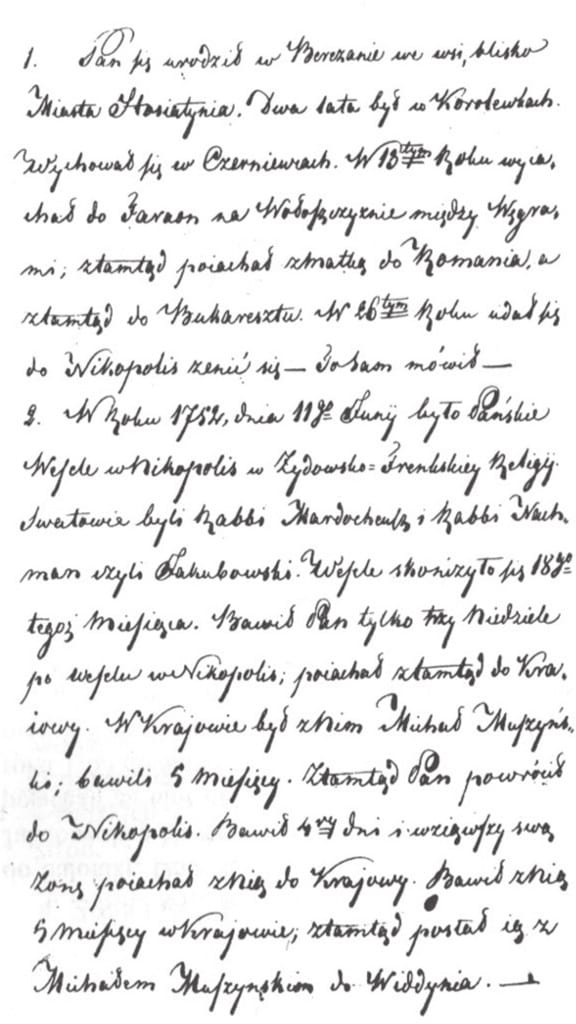 1. Pan się urodził w Berezanie we wsi, blisko
Miasta Husiatynia. Dwa lata był w Korolewkach.
Wychował się w Czerniewcach. W 13tym Roku wyia,
chał do Faraon na Wołoszczyznie między Węgra,
mi; ztamtąd poiachał zmatką do Romania, a
ztamtąd do Bukaresztu. W 26tym Roku udał się
do Nikopolis zenić się — To sam mówił —
2. W Roku 1752, dnia 11go Junij było Pańskie
Wesele w Nikopolis w Zydowsko=Frenkskiey Religij.
Swatowie byli Rabbi Mardocheusz i Rabbi Nach,
man czyli Jakubowski. Wesele skończyło się 18go
tegoż Miesięca. Bawił Pan tylko trzy Niedziele
po weselu w Nikopolis; poiachał ztamtąd do Kra,
iowy. W Krajowie był z Nim Michał Muszyńs,
ki; bawili 5 Miesięcy. Ztamtąd Pan powrócił
do Nikopolis. Bawił 4ry dni i wziąwszy swą
żonę poiachał z Nią do Krajowy. Bawił z Nią
5 Miesięcy w Krajowie; ztamtąd posłał ią z
Michałem Muszynskim do Widdynia. —